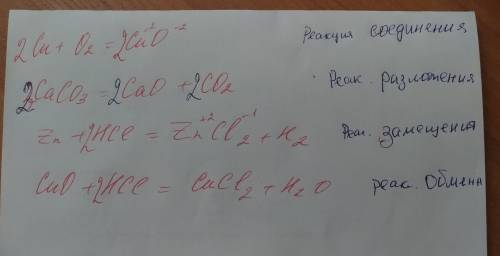 2Cu + O₂ = 2Cu⁺²O⁻² Реакция соединения
2CaCO₃ = 2CaO + 2CO₂ Реак. разложения
Zn + 2HCl = Zn⁺²Cl₂⁻¹ + H₂ Реак. замещения
CuO + 2HCl = CuCl₂ + H₂O реак. Обмена